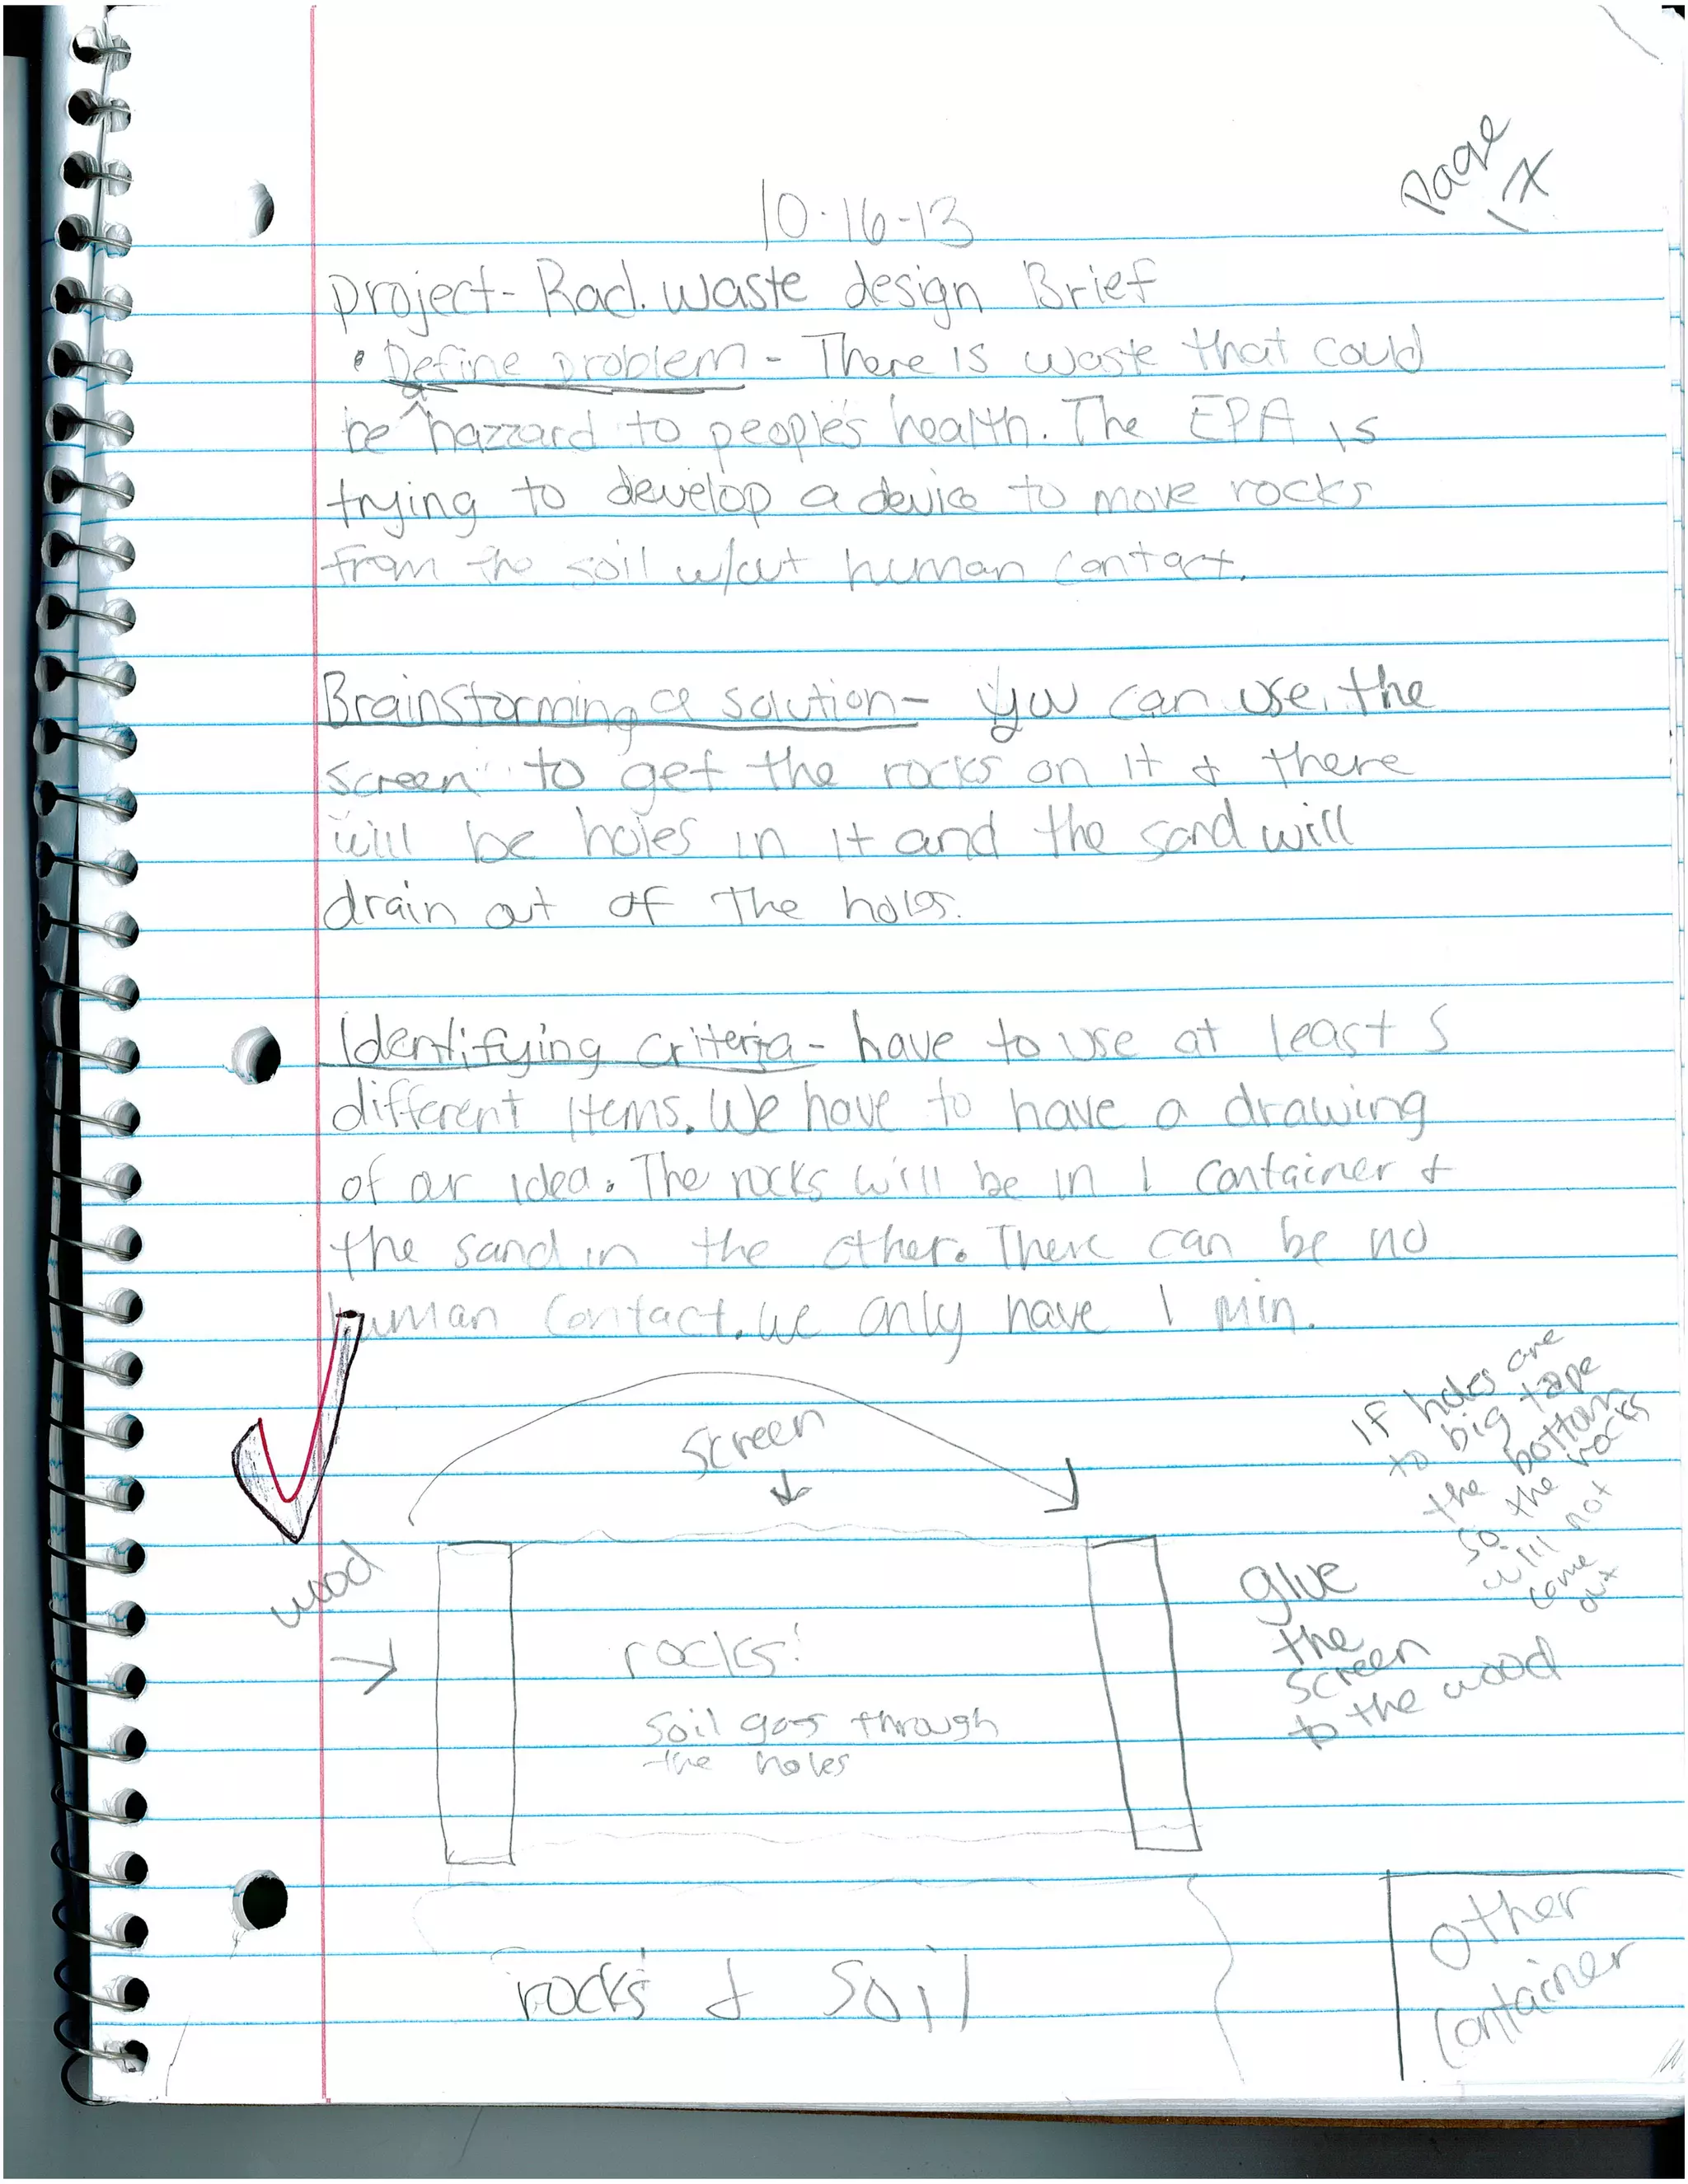 Page
10-16-13
project- Rad. waste design Brief
• Define problem - There is waste that could
be a hazzard to people's health. The EPA is
trying to develop a device to move rocks
from the soil w/out human contact.
Brainstorming a solution- you can use the
screen to get the rocks on it & there
will be holes in it and the sand will
drain out of the holes.
Identifying criteria- have to use at least 5
different items. We have to have a drawing
of our idea. The rocks will be in 1 container &
the sand in the other. There can be no
human contact. we only have 1 min.
If holes are
to big tape
the bottom
so the rocks
will not
come
out
screen
wood
glue
the
screen
to the wood
rocks!
soil goes through
the holes
rocks & soil
other
container